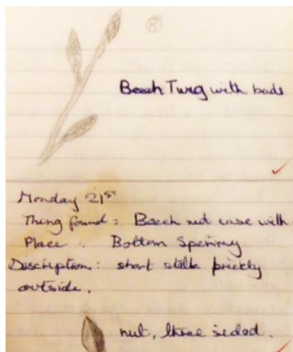 Beech Twig with buds
Monday 21st
Thing found: Beech nut case with
Place. Bottom Spinney
Discription: short stalk prickly
outside.
nut, three sided.